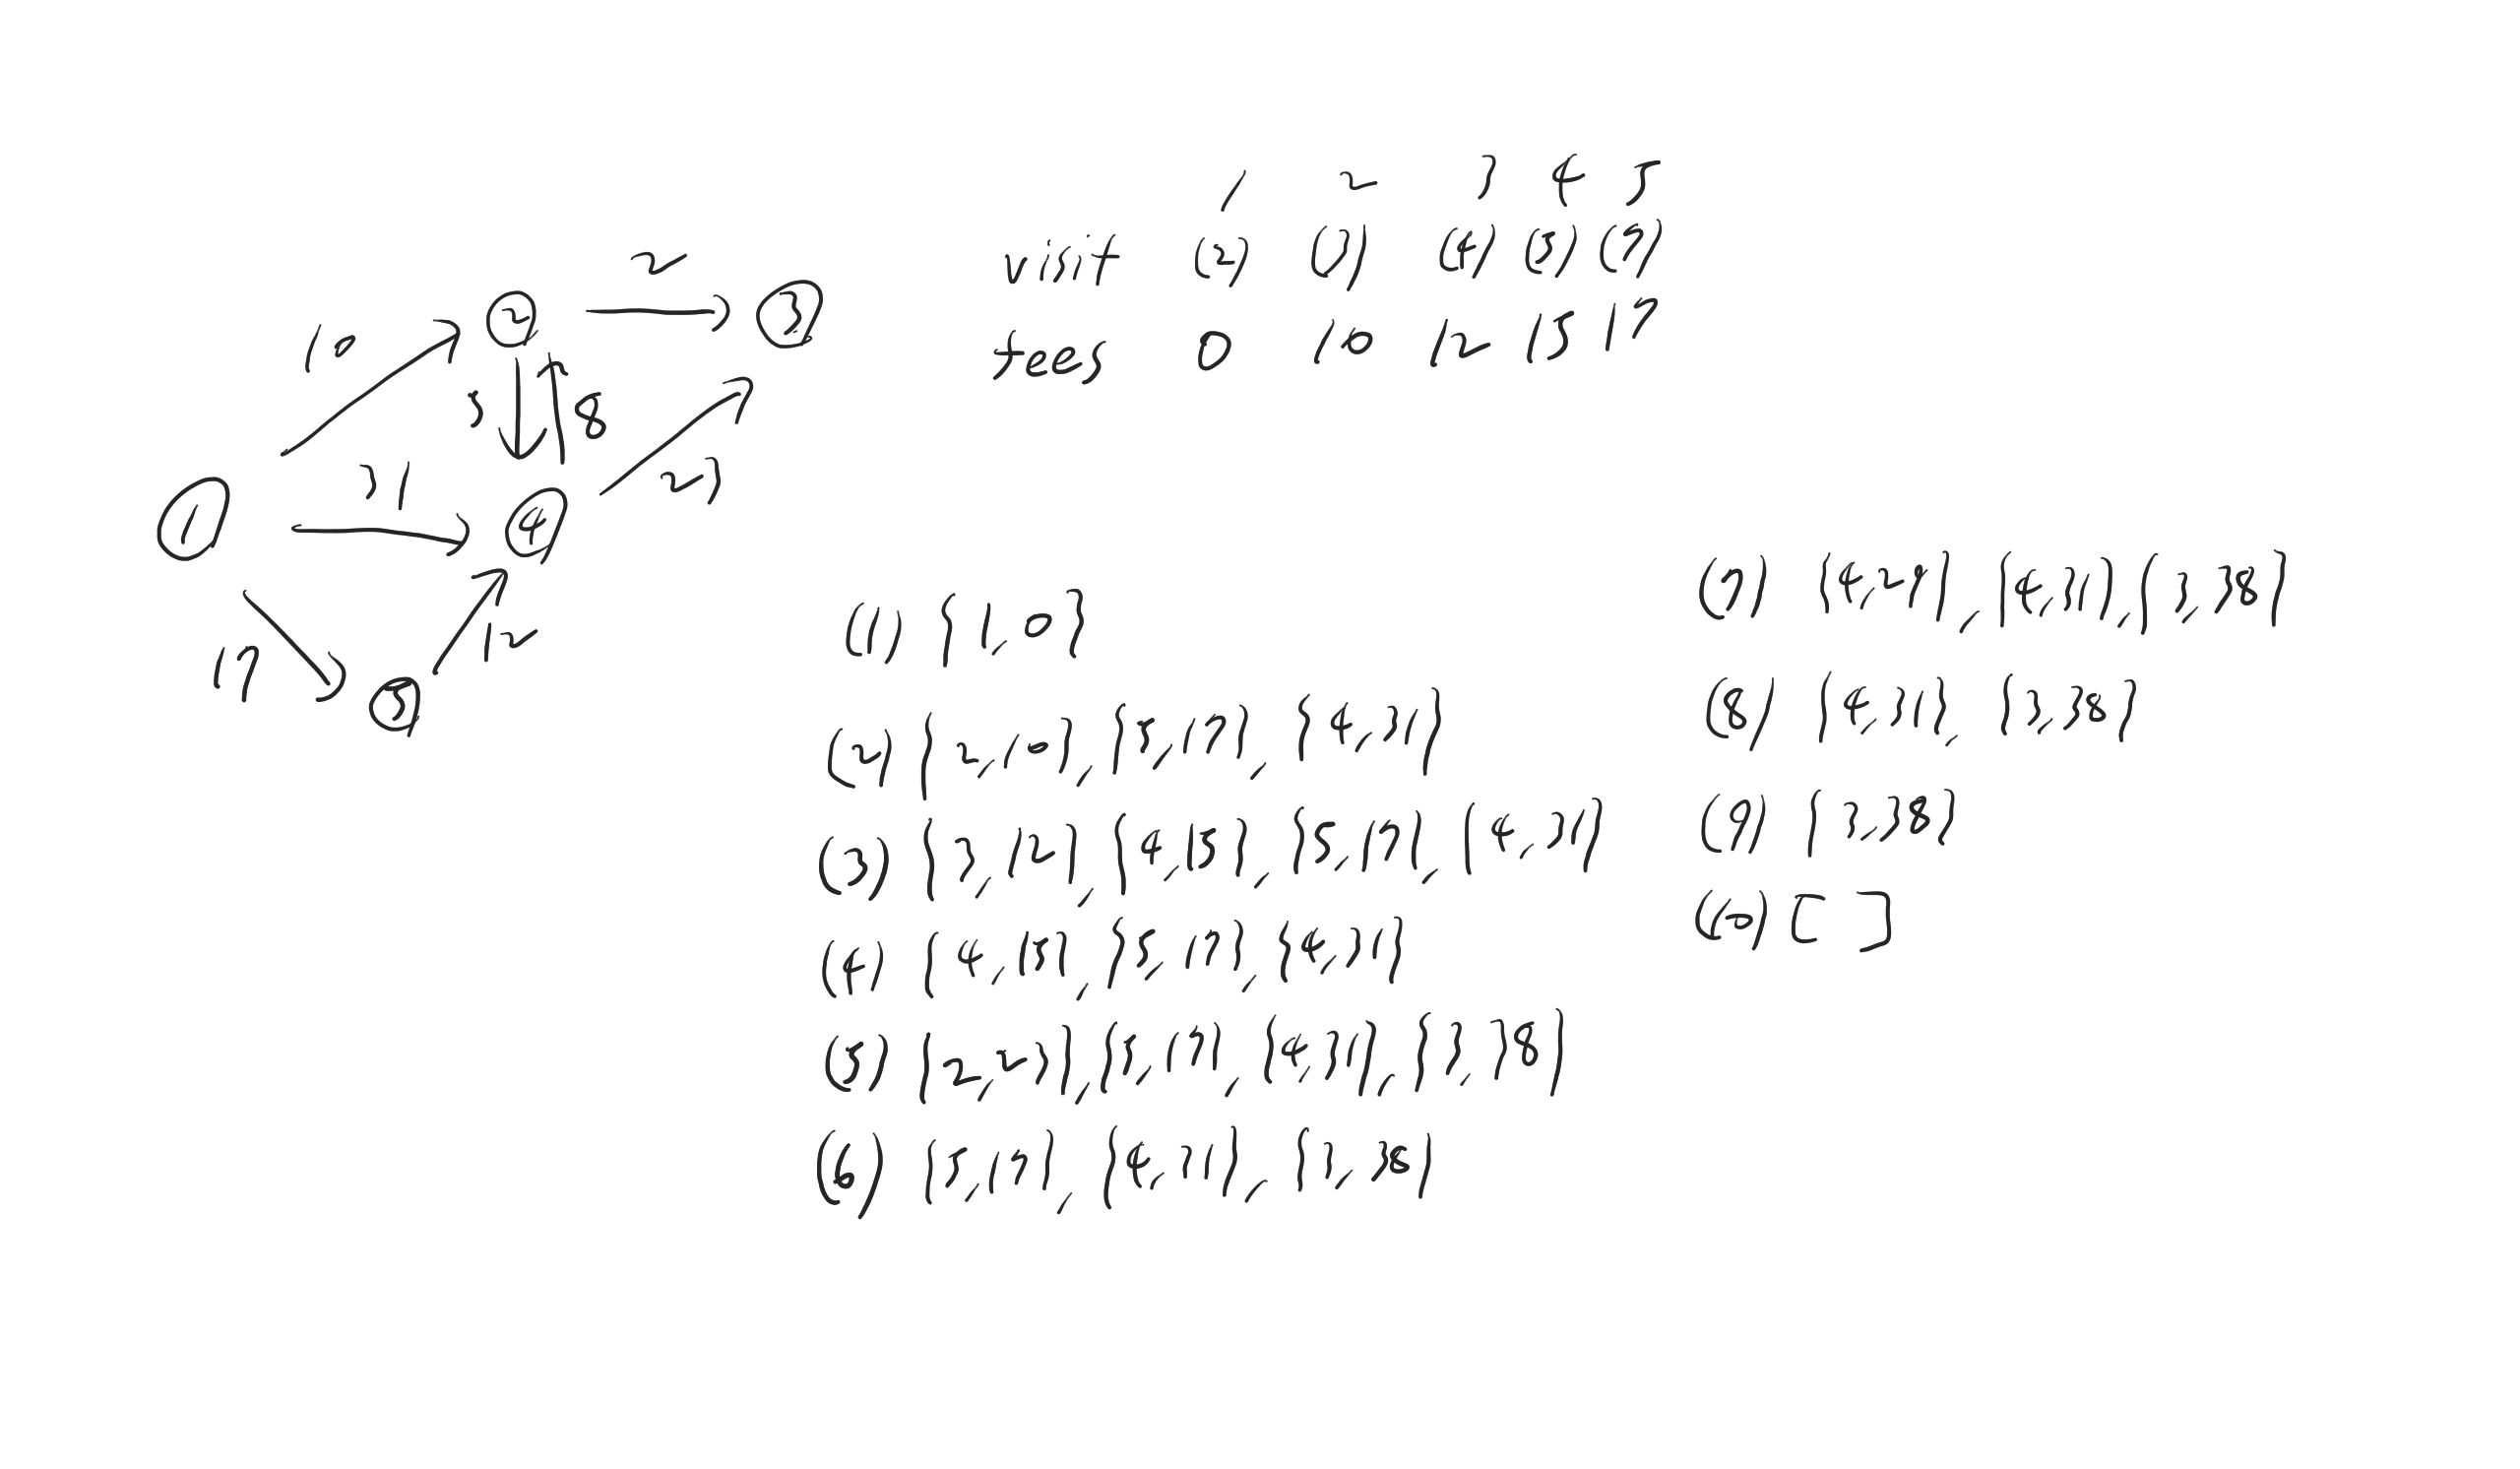 10
2
② ③
3 8
31
23
① ④
17 12
⑤
1 2 3 4 5
visit (2) (3) (4) (5) (7)
tees 0 10 12 15 17
(1) {1, 0}
(2) {2, 10}, {5, 17}, {4, 31}
(3) {3, 12}, {4, 15}, {5, 17}, {4, 31}
(4) {4, 15}, {5, 17}, {4, 31}
(5) {2, 23}, {5, 17}, {4, 31}, {3, 38}
(6) {5, 17}, {4, 31}, {3, 38}
(7) {4, 29}, {4, 31}, {3, 38}
(8) {4, 31}, {3, 38}
(9) {3, 38}
(10) [ ]